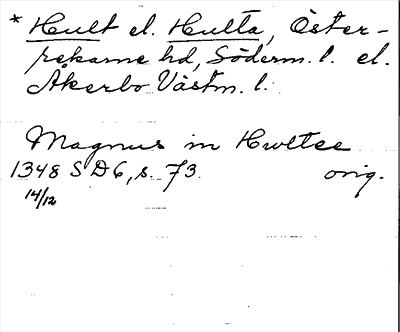 * Hult el. Hulta, Öster-
rekarne hd, Söderm. l. el.
Åkerbo Västm. l.
Magnus in Hwltee
1348 SD6, s. 73. orig.
14/12